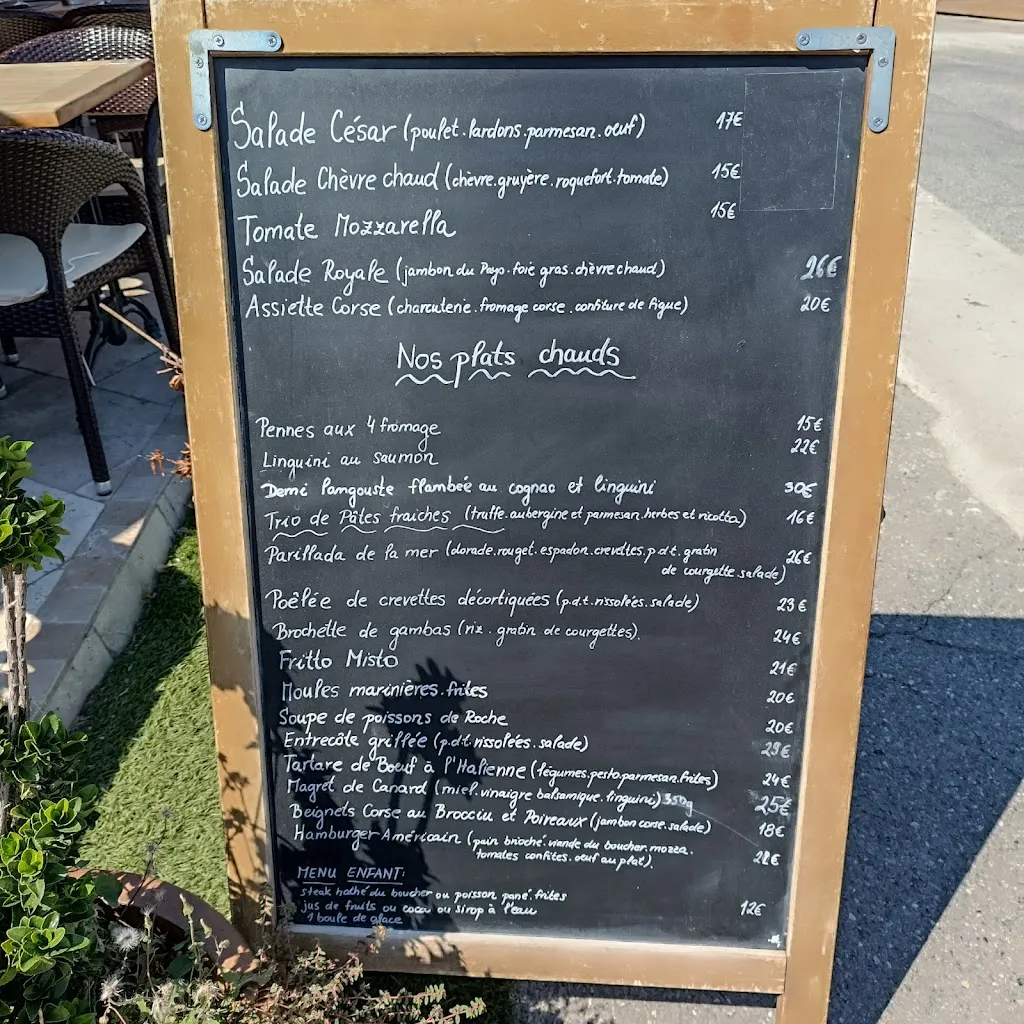 Salade César (poulet.lardons.parmesan.oeuf) 17€
Salade Chèvre chaud (chèvre.gruyère.roquefort.tomate) 15€
Tomate Mozzarella 15€
Salade Royale (jambon du Pays.foie gras.chèvre chaud) 26€
Assiette Corse (charcuterie.fromage corse.confiture de figue) 20€
Nos plats chauds
Pennes aux 4 fromage 15€
Linguini au saumon 22€
Demi langouste flambée au cognac et linguini 30€
Trio de Pâtes fraiches (truffe.aubergine et parmesan.herbes et ricotta) 16€
Parillada de la mer (dorade.rouget.espadon.crevettes.p.d.t.gratin 26€
de courgette.salade)
Poêlée de crevettes décortiquées (p.d.t.rissolées.salade) 23€
Brochette de gambas (riz.gratin de courgettes). 24€
Fritto Misto 21€
Moules marinières.frites 20€
Soupe de poissons de Roche 20€
Entrecôte grillée (p.d.t.rissolées.salade)
Tartare de Boeuf à l'Italienne (légumes.pesto.parmesan.frites) 24€
Magret de Canard (miel.vinaigre balsamique.linguini) 350g 25€
Beignets Corse au Brocciu et Poireaux (jambon corse.salade) 18€
Hamburger Américain (pain brioché.viande du boucher.mozza.
tomates confites.oeuf au plat).
MENU ENFANT:
steak haché du boucher ou poisson pané.frites
jus de fruits ou coca ou sirop à l'eau 12€
1 boule de glace